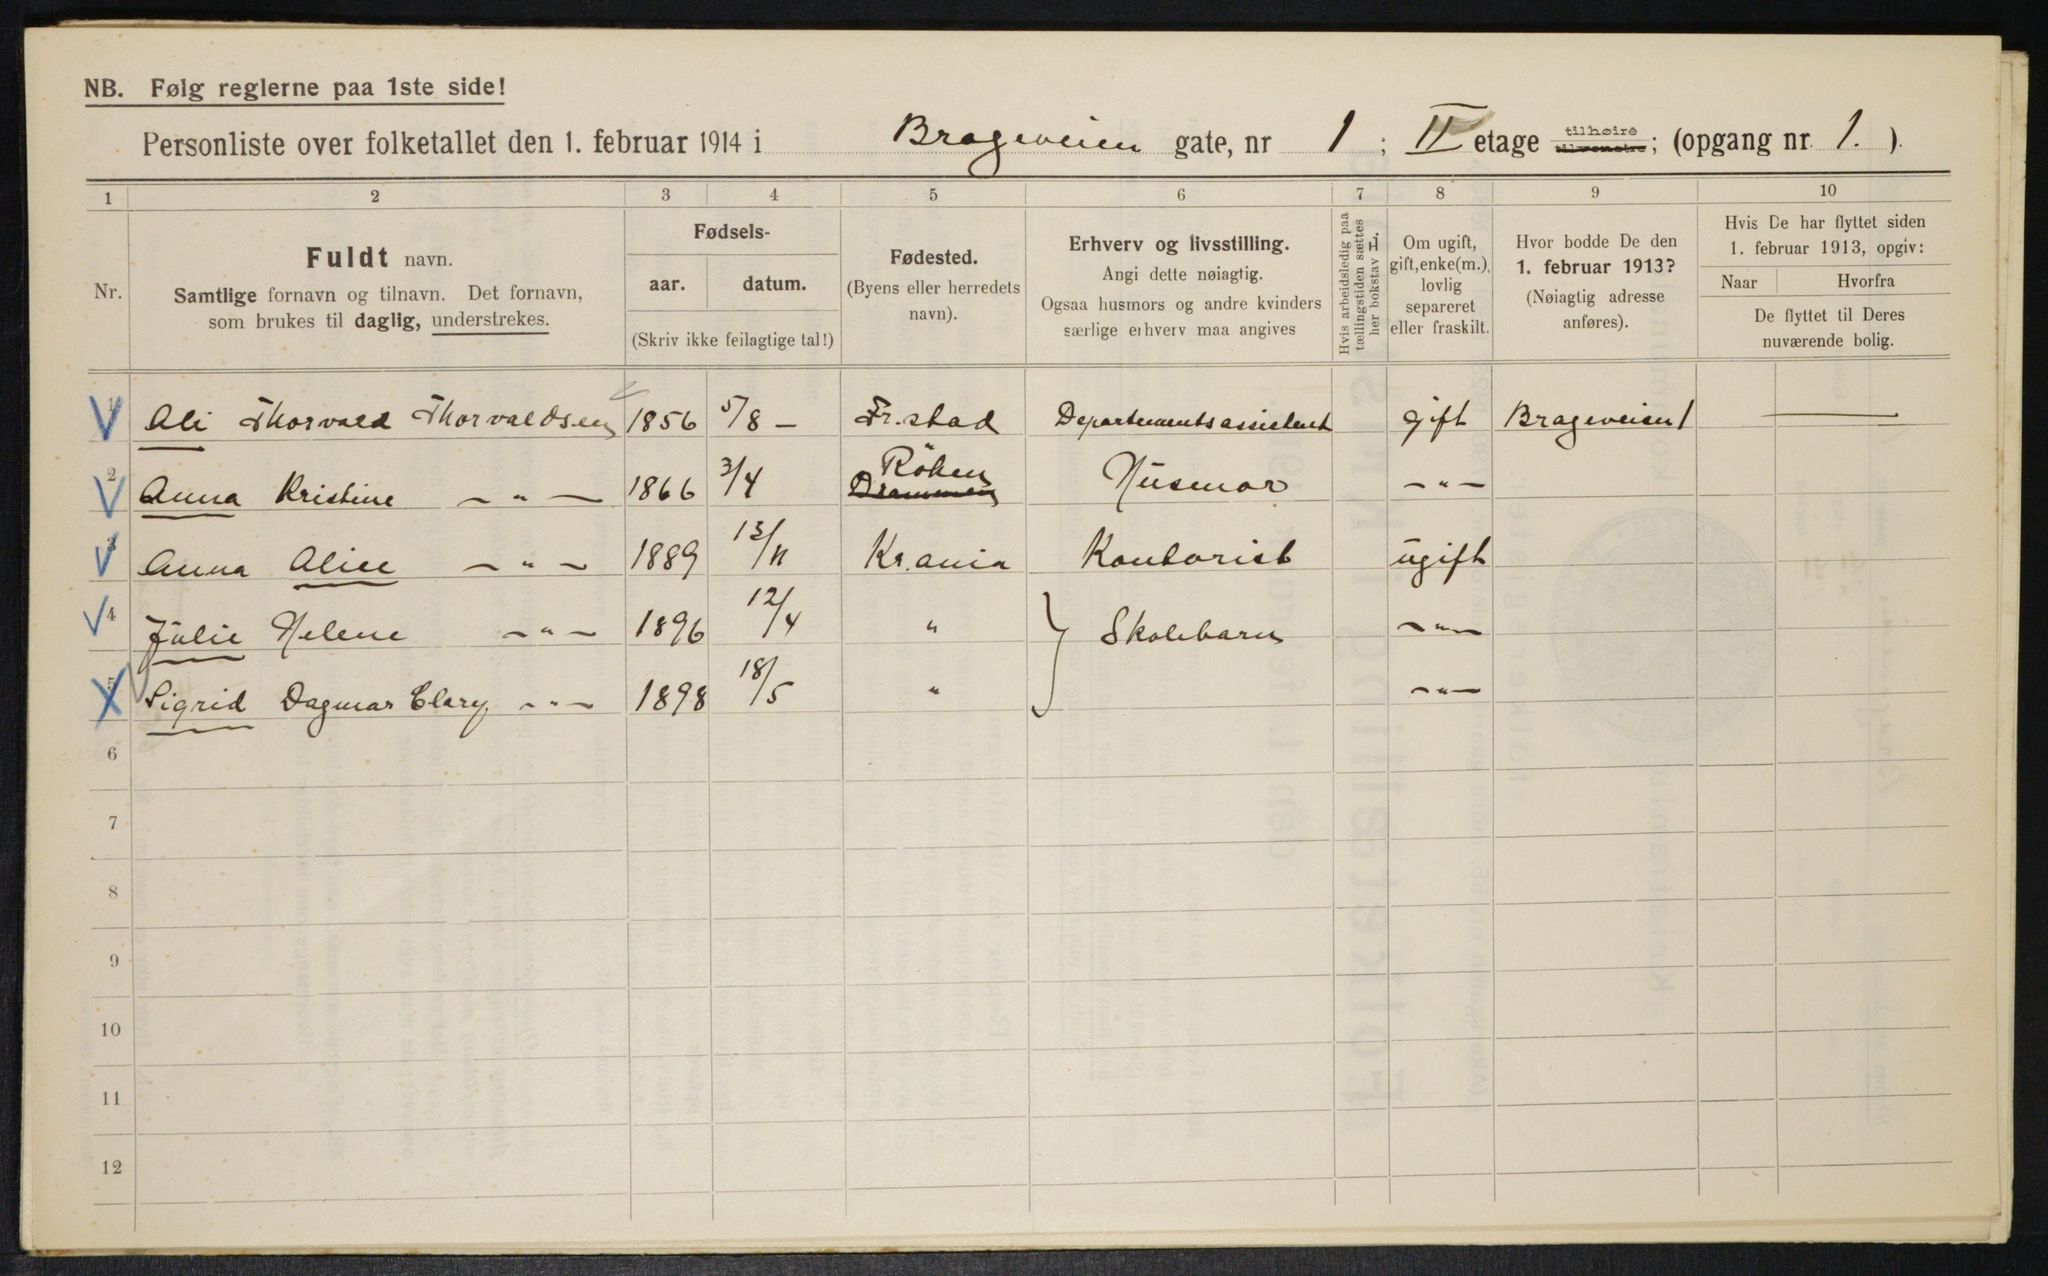 NB. Følg reglerne paa 1ste side!
Personliste over folketallet den 1. februar 1914 i Brageveien gate, nr 1 ; II etage tilhøire tilvenstre; (opgang nr. 1. ).
1 2 3 4 5 6 7 8 9 10
Nr.
Fuldt navn.
Samtlige fornavn og tilnavn. Det fornavn,
som brukes til daglig, understrekes.
Fødsels-
aar. datum.
(Skriv ikke feilagtige tal!)
Fødested.
(Byens eller herredets
navn).
Erhverv og livsstilling.
Angi dette nøiagtig.
Ogsaa husmors og andre kvinders
særlige erhverv maa angives
Hvis arbeidsledig paa
tællingstiden sættes
her bokstav L.
Om ugift,
gift, enke(m.),
lovlig
separeret
eller fraskilt.
Hvor bodde De den
1. februar 1913?
(Nøiagtig adresse
anføres).
Hvis De har flyttet siden
1. februar 1913, opgiv:
Naar Hvorfra
De flyttet til Deres
nuværende bolig.
1 Ali Thorvald Thorvaldsen 1856 5/8 — Fr.stad Departementsassistent gift Brageveien 1 —
2 Anna Kristine — " — 1866 3/4 Röken Drammen Husmor — " —
3 Anna Alice — " — 1889 13/11 Kr.ania Kontorist ugift
4 Julie Helene — " — 1896 12/4 " } Skolebarn — " —
5 Sigrid Dagmar Clary — " — 1898 18/5 " — " —
6
7
8
9
10
11
12